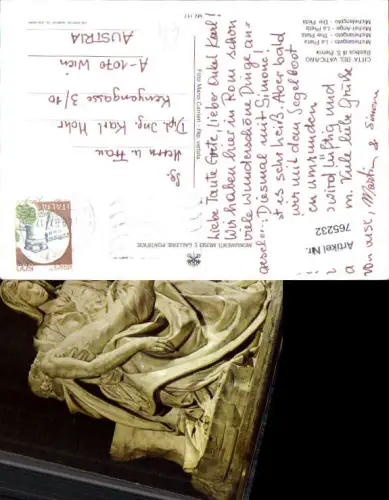 CITTÀ DEL VATICANO
Basilica di S. Pietro
Michelangelo - La Pietà
Michelangelo - The Pietà
Michel-Ange - La Pietà
Michelangelo - Die Pietà
MONUMENTI MUSEI E GALLERIE PONTIFICIE
Liebe Tante Grete, lieber Onkel Karl!
Wir haben hier in Rom schon
viele wunderschöne Dinge an-
Diesmal mit Simone!
st es sehr heiß. Aber bald
wir mit dem Segelboot
en umrunden
wird lustig und
m. Viele liebe Grüße
von uns, Martin & Simone
ITALIA
500
Herrn u. Frau
Dpl. Ing. Karl Mohr
Kenyongasse 3/10
A-1070 Wien
AUSTRIA
Artikel Nr.
765232